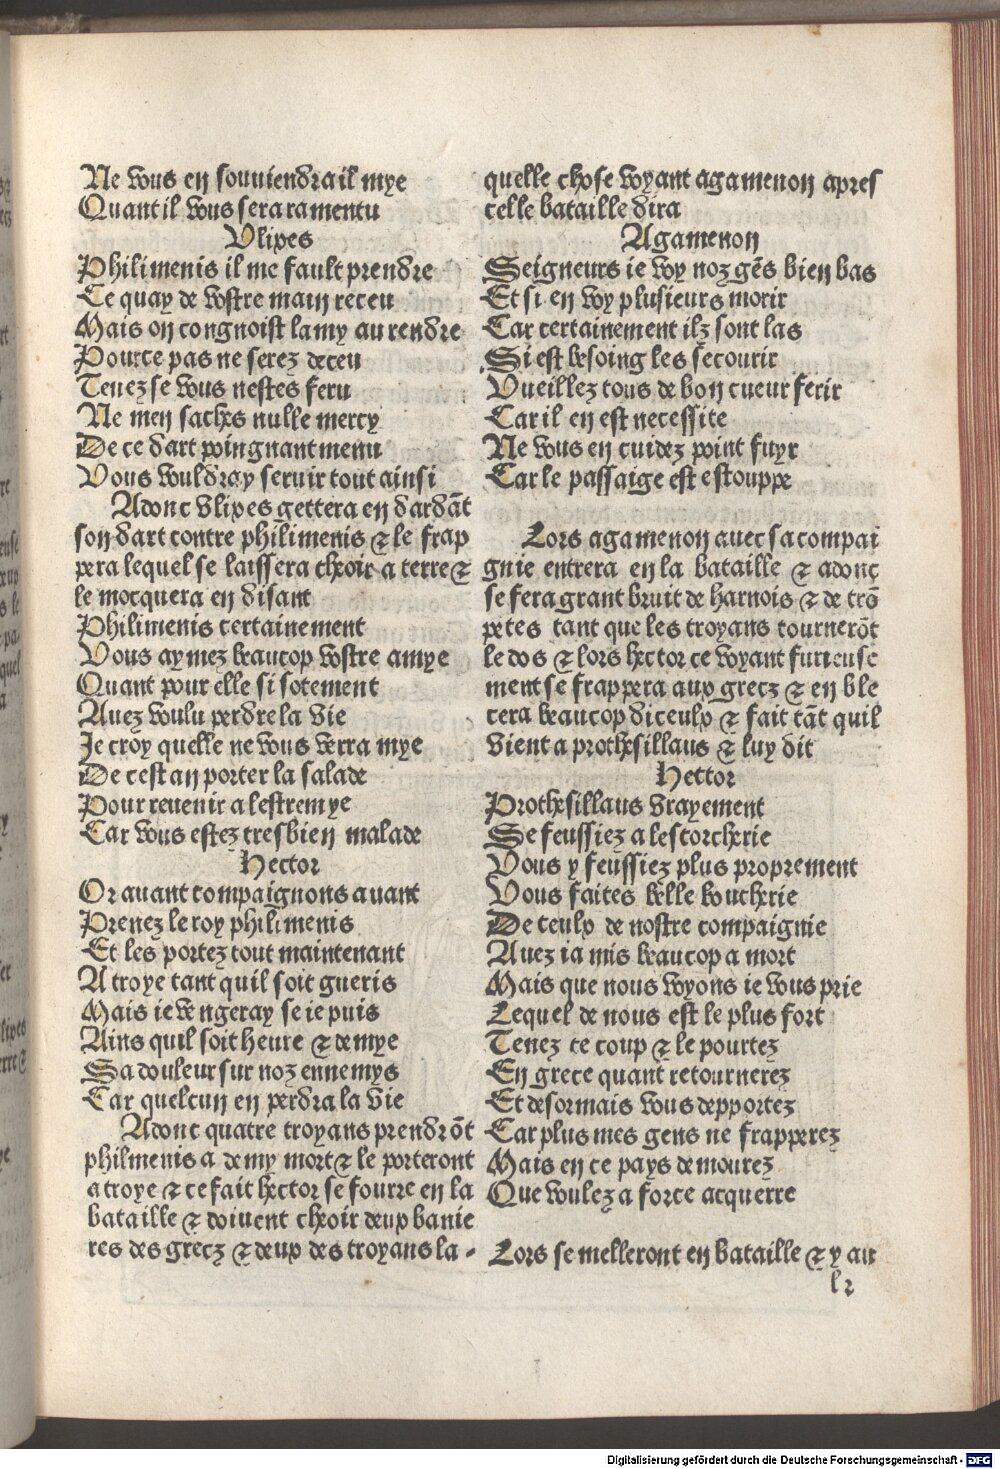 Ne vous en souuiendra il mye
Quant il vous sera ramentu
Vlixes
Philimenis il me fault prendre
Ce quay de vostre main receu
Mais on congnoist lamy au rendre
Pource pas ne serez deceu
Tenez se vous nestes feru
Ne men saches nulle mercy
De ce dart poingnant menu
Vous vouldray seruir tout ainsi
Adonc vlixes gettera en dardāt
son dart contre philimenis ⁊ le frap
pera lequel se laissera cheoir a terre ⁊
le mocquera en disant
Philimenis certainement
Vous aymez beaucop vostre amye
Quant pour elle si sotement
Auez voulu perdre la vie
Je croy quelle ne vous verra mye
De cest an porter la salade
Pour reuenir a lestremye
Car vous estez tresbien malade
Hector
Or auant compaignons auant
Prenez le roy philimenis
Et les portez tout maintenant
A troye tant quil soit gueris
Mais ie vengeray se ie puis
Ains quil soit heure ⁊ demye
Sa douleur sur noz ennemys
Car quelcun en perdra la vie
Adonc quatre troyans prendrōt
philmenis a demy mort ⁊ le porteront
a troye ⁊ ce fait hector se fourre en la
bataille ⁊ doiuent cheoir deux banie
res des grecz ⁊ deux des troyans la-
quelle chose voyant agamenon apres
celle bataille dira
Agamenon
Seigneurs ie voy noz gēs bien bas
Et si en voy plusieurs morir
Car certainement ilz sont las
Si est besoing les secourir
Vueillez tous de bon cueur ferir
Car il en est necessite
Ne vous en cuidez point fuyr
Car le passaige est estouppe
Lors agamenon auec sa compai
gnie entrera en la bataille ⁊ adonc
se fera grant bruit de harnois ⁊ de trō
petes tant que les troyans tournerōt
le dos ⁊ lors hector ce voyant furieuse
ment se frappera aux grecz ⁊ en ble
cera beaucop diceulx ⁊ fait tāt quil
vient a prothesillaus ⁊ luy dit
Hector
Prothesillaus vrayement
Se feussiez a lescorcherie
Vous y feussiez plus proprement
Vous faites belle boucherie
De ceulx de nostre compaignie
Auez ia mis beaucop a mort
Mais que nous voyons ie vous prie
Lequel de nous est le plus fort
Tenez ce coup ⁊ le portez
En grece quant retournerez
Et desormais vous depportez
Car plus mes gens ne frapperez
Mais en ce pays demourez
Que voulez a force acquerre
Lors se melleront en bataille ⁊ y au
l2
Digitalisierung gefördert durch die Deutsche Forschungsgemeinschaft - DFG